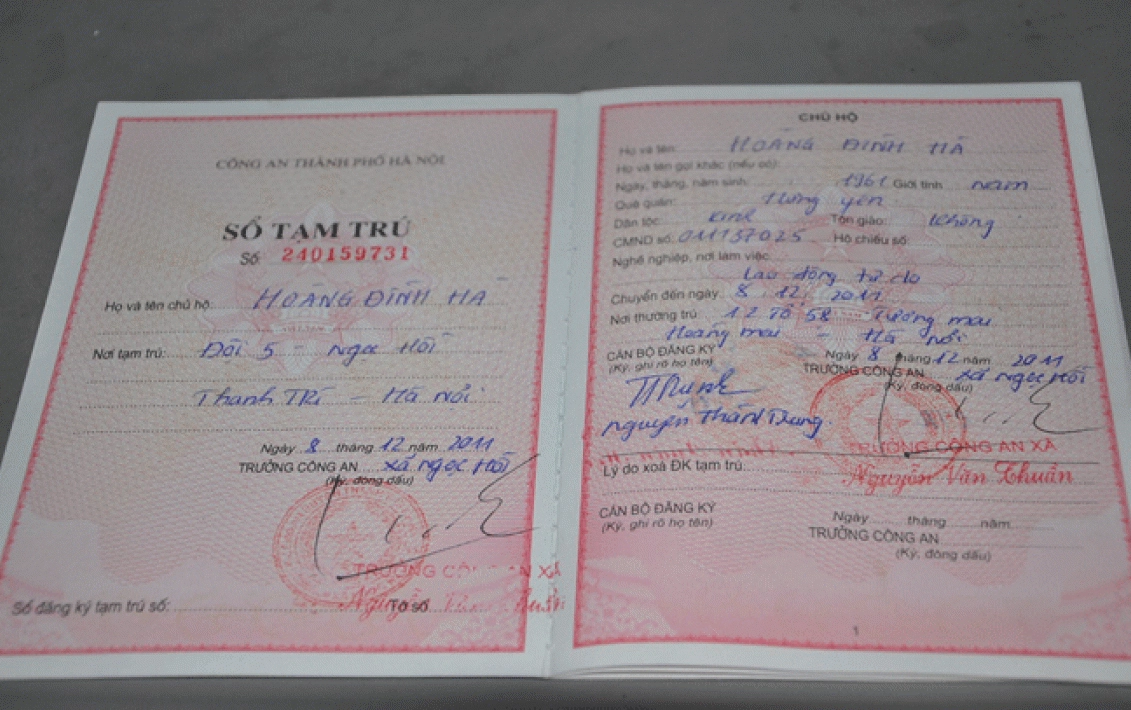 CÔNG AN THÀNH PHỐ HÀ NỘI
SỔ TẠM TRÚ
Số: 240159731
Họ và tên chủ hộ: HOÀNG ĐÌNH HÀ
Nơi tạm trú: Đội 5 - Ngọc Hồi
Thanh Trì - Hà Nội
Ngày 8 tháng 12 năm 2011
TRƯỞNG CÔNG AN xã Ngọc Hồi
(Ký, đóng dấu)
TRƯỞNG CÔNG AN XÃ
Nguyễn Văn Chuẩn
Sổ đăng ký tạm trú số: Tờ số
CHỦ HỘ
Họ và tên: HOÀNG ĐÌNH HÀ
Họ và tên gọi khác (nếu có):
Ngày, tháng, năm sinh: 1961 Giới tính: nam
Quê quán: Hưng Yên
Dân tộc: Kinh Tôn giáo: Không
CMND số: 011157025 Hộ chiếu số:
Nghề nghiệp, nơi làm việc:
Lao động tự do
Chuyển đến ngày: 8.12.2011
Nơi thường trú: 12 Tổ 58 Tương mai
Hoàng mai - Hà nội
CÁN BỘ ĐĂNG KÝ
(Ký, ghi rõ họ tên)
Ngày 8 tháng 12 năm 2011
TRƯỞNG CÔNG AN xã Ngọc Hồi
(Ký, đóng dấu)
nguyễn Thành Trung
TRƯỞNG CÔNG AN XÃ
Nguyễn Văn Chuẩn
Lý do xoá ĐK tạm trú:
CÁN BỘ ĐĂNG KÝ
(Ký, ghi rõ họ tên)
Ngày tháng năm
TRƯỞNG CÔNG AN
(Ký, đóng dấu)
1